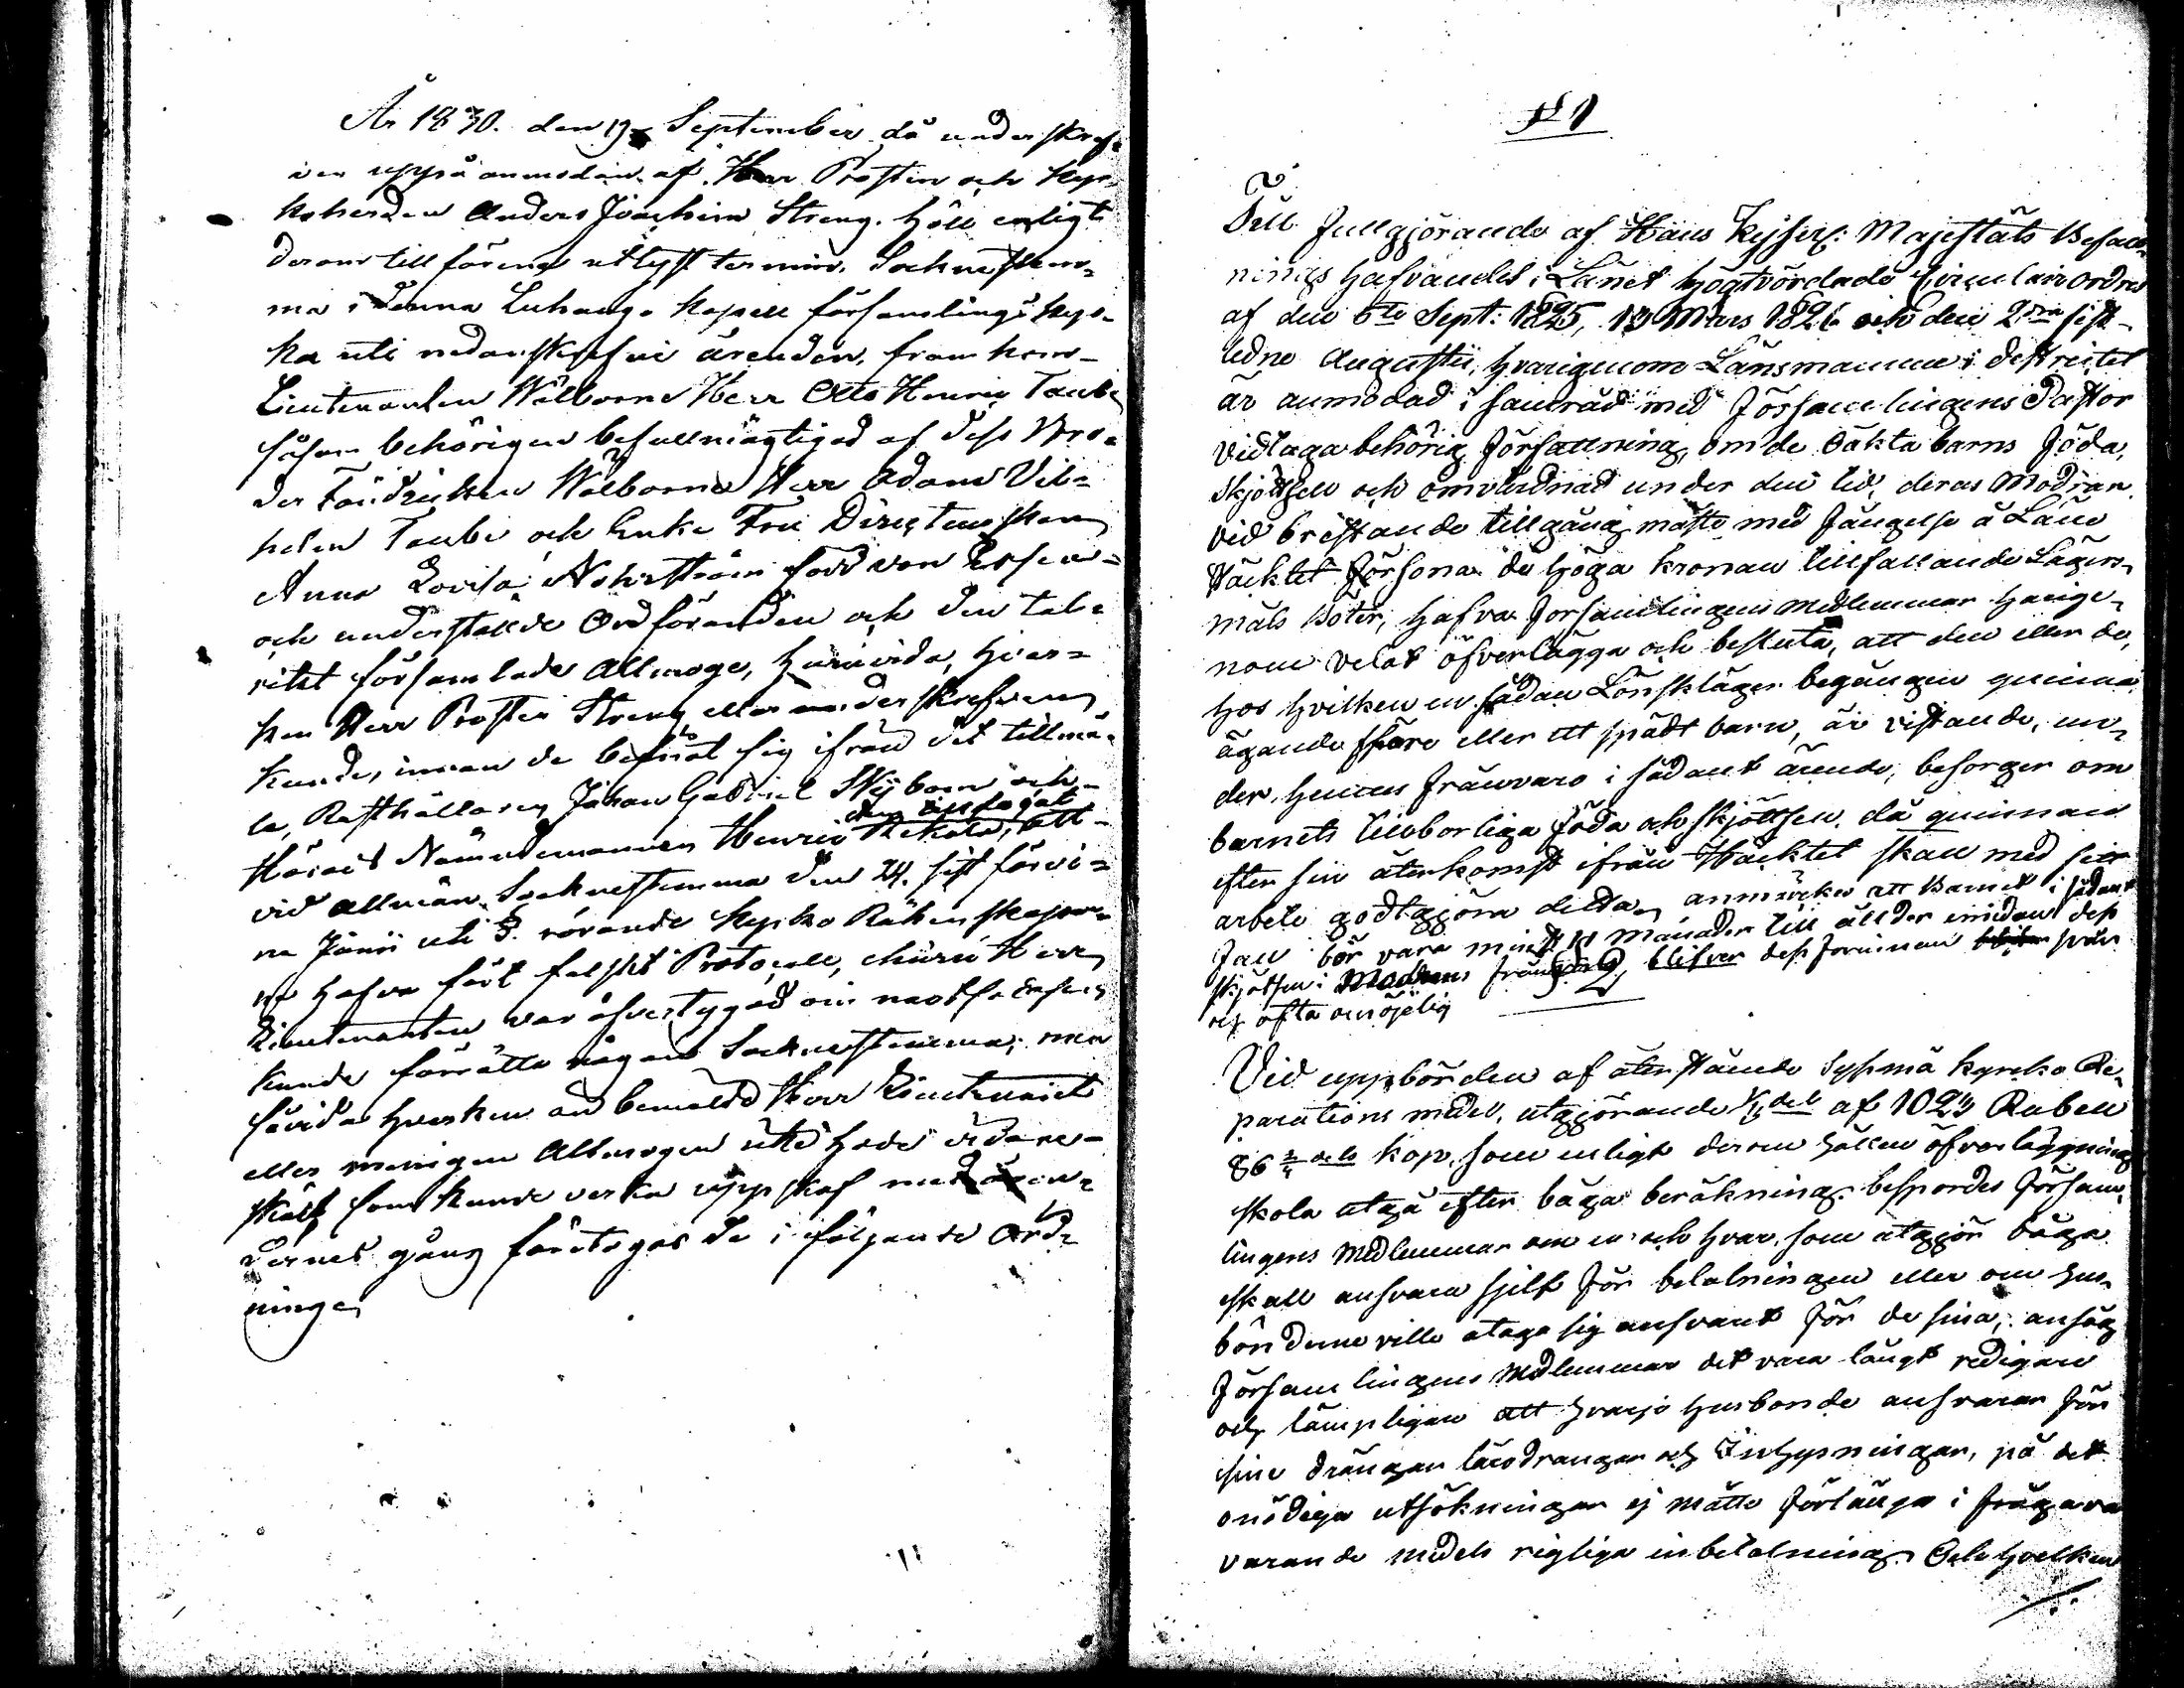 År 1830. den 19 September då underskref-
ven uppå anmodan af Herr Prosten och Kyr-
koherden Anders Joachim Streng. höll enligt
derom till förene utlyst termin, Sockne stäm-
ma i denna Luhanga Kapell församlings Kyr-
ka uti nedanskrefne ärenden, framkom
Lieutenanten Wälborne Herr Otto Henric Taube
såsom behörigen befullmägtigad af dess Bro-
der Fändricken Wälborne Herr Adam Vil-
helm Taube och Enke Fru
Anna Lovisa Nohrström född von Essen
och underställde Ordföranden och den tal-
rikt församlade Allmoge, huruvida, hvar-
ken Herr Prosten Streng eller underskrefven
kunde, innan de befriat sig ifrån det tillmä-
le, Rusthållaren Johan Gabriel Nyborn och
Härads Nämndemannen Henric Rekola, att
dem
vid allmän Socknestemma den 24. sist förvi-
ne Junii uti §. rörande Kyrko Räkenskaper-
ne hafva fört falskt Protocoll, Herr
Lieutenanten var öfvertygad om
kunde förrätta någon Socknestemma; men
såvida hvarken an bemälde Herr Lieutenant
eller menigen Allmogen hade
skäl som kunde verka uppskof med ären-
dernes gång företogos de i följande Ord-
ning

§ 1
Till fullgjörande af Hans Kejserl: Majestäts Befall-
nings hafvandes i Länet högtvördade Circulair ordres
af den 6te Sept: 1825, 13 Mars 1826 och den 2dra sist-
ledne Augusti, hvarigenom Länsmannen i destrictet
är anmodad i samråd med Församlingens Pastor
vidtaga behörig författning, om de oäkta barns föda,
skjöttsell och omvårdnad under den tid, deras Mödrar
vid bristande tillgång måste med fängelse å Läns
Häcktet försona de höga kronan tillfallande Lägers-
måls böter, hafva församlingens medlemmar härige-
nom velat öfverlägga och besluta, att den eller de,
hos hvilken en sådan Lönskläger begången qvinna
ägande större eller ett spädt barn, är vistande, un-
der hennes frånvaro i sådant ärende, besörger om
barnets tillborliga föda och skjöttsell, då qvinnan
efter sin återkomst ifrån Häcktet skall med sitt
arbete godtgjöra detta, anmärkes att Barnet i sådant
fall bör vara minst 11 månader till ållder emedan dess
skjötsel i Modrens frånvaro blifver dess forinnan svår
och ofta omöjelig
§ 2
Vid uppbörden af återstående Sysmä kyrcko Re-
parations medel, utgjörande del af 1023 Rubel
86 2/7 dels kop. som enligt derom hållen öfverläggning
skola utgå efter båga beräkning, bespordes Försam-
lingens Medlemmar om en och hvar, som utgjör båga
skall ansvara sjelf för betalningen eller om hus-
bönderne ville ataga sig ansvaret för de sina; ansåg
Församlingens Medlemmar det vara långt redigare
och lämpligare att hvarje husbonde ansvarar för
sine drängar lärodrängar och Inhysningar, på det
onödiga utsökningar ej måtte förlänga i fråga va
varande medels rigtiga inbetalning. Och hvilken